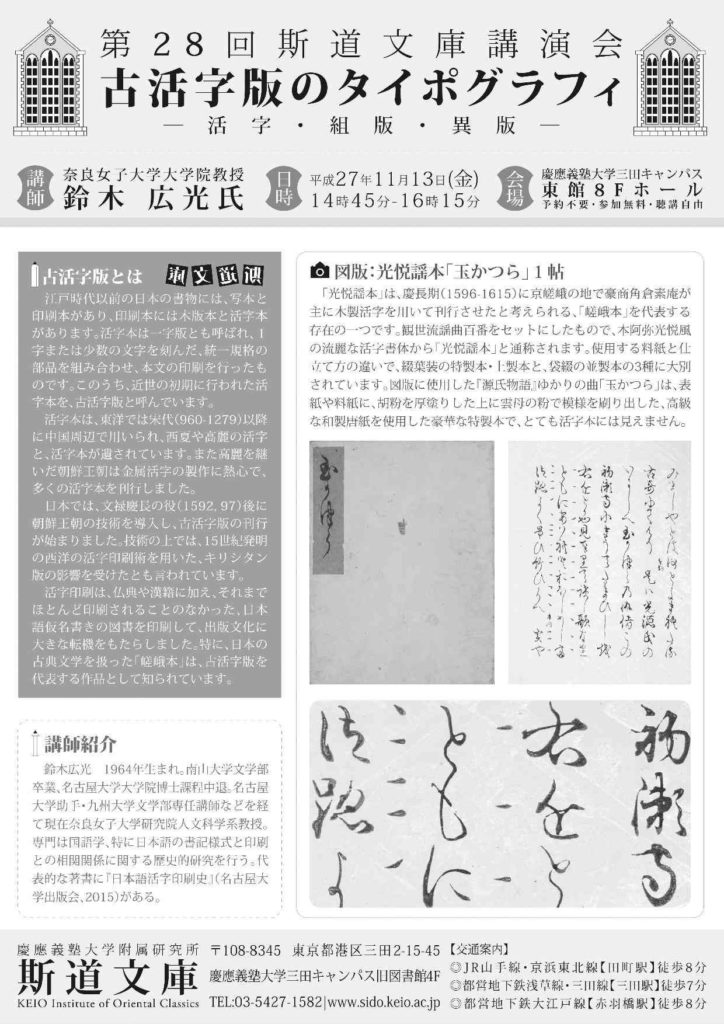 第28回斯道文庫講演会
古活字版のタイポグラフィ
―活字・組版・異版―
講師
奈良女子大学大学院教授
鈴木 広光氏
日時
平成27年11月13日(金)
14時45分-16時15分
会場
慶應義塾大学三田キャンパス
東館8Fホール
予約不要・参加無料・聴講自由
古活字版とは
江戸時代以前の日本の書物には、写本と
印刷本があり、印刷本には木版本と活字本
があります。活字本は一字版とも呼ばれ、1
字または少数の文字を刻んだ、統一規格の
部品を組み合わせ、本文の印刷を行ったも
のです。このうち、近世の初期に行われた活
字本を、古活字版と呼んでいます。
活字本は、東洋では宋代(960-1279)以降
に中国周辺で用いられ、西夏や高麗の活字
と、活字本が遺されています。また高麗を継
いだ朝鮮王朝は金属活字の製作に熱心で、
多くの活字本を刊行しました。
日本では、文禄慶長の役(1592,97)後に
朝鮮王朝の技術を導入し、古活字版の刊行
が始まりました。技術の上では、15世紀発明
の西洋の活字印刷術を用いた、キリシタン
版の影響を受けたとも言われています。
活字印刷は、仏典や漢籍に加え、それまで
ほとんど印刷されることのなかった、日本
語仮名書きの図書を印刷して、出版文化に
大きな転機をもたらしました。特に、日本の
古典文学を扱った「嵯峨本」は、古活字版を
代表する作品として知られています。
講師紹介
鈴木広光 1964年生まれ。南山大学文学部
卒業、名古屋大学大学院博士課程中退。名古屋
大学助手・九州大学文学部専任講師などを経
て現在奈良女子大学研究院人文科学系教授。
専門は国語学、特に日本語の書記様式と印刷
との相関関係に関する歴史的研究を行う。代
表的な著書に『日本語活字印刷史』(名古屋大
学出版会、2015)がある。
図版:光悦謡本「玉かつら」1帖
「光悦謡本」は、慶長期(1596-1615)に京嵯峨の地で豪商角倉素庵が
主に木製活字を用いて刊行させたと考えられる、「嵯峨本」を代表する
存在の一つです。観世流謡曲百番をセットにしたもので、本阿弥光悦風
の流麗な活字書体から「光悦謡本」と通称されます。使用する料紙と仕
立て方の違いで、綴葉装の特製本・上製本と、袋綴の並製本の3種に大別
されています。図版に使用した『源氏物語』ゆかりの曲「玉かつら」は、表
紙や料紙に、胡粉を厚塗りした上に雲母の粉で模様を刷り出した、高級
な和製唐紙を使用した豪華な特製本で、とても活字本には見えません。
玉かつら
初瀬寺
右をと
ともに
慶應義塾大学附属研究所
斯道文庫
KEIO Institute of Oriental Classics
〒108-8345 東京都港区三田2-15-45
慶應義塾大学三田キャンパス旧図書館4F
TEL:03-5427-1582|www.sido.keio.ac.jp
【交通案内】
◎JR山手線・京浜東北線【田町駅】徒歩8分
◎都営地下鉄浅草線・三田線【三田駅】徒歩7分
◎都営地下鉄大江戸線【赤羽橋駅】徒歩8分